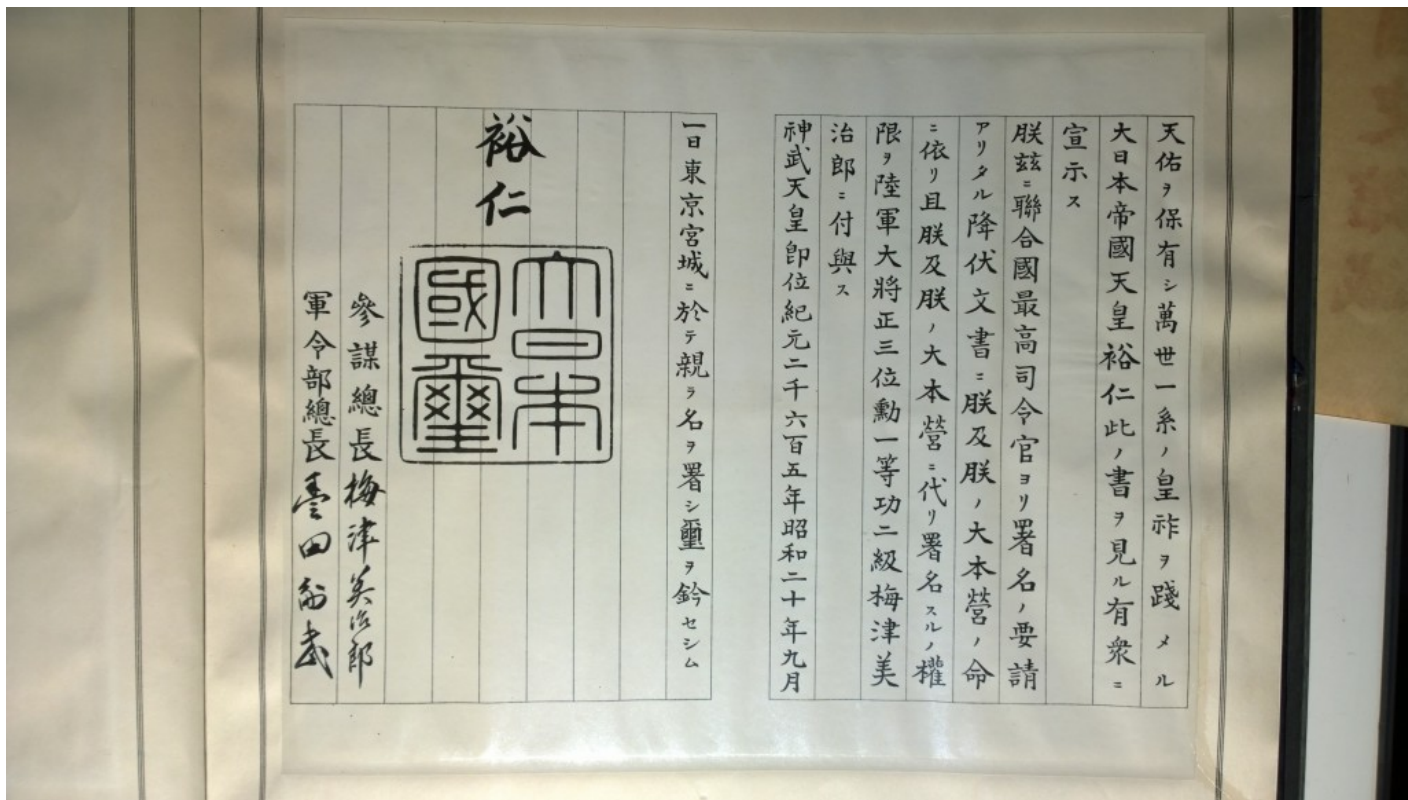 天佑ヲ保有シ萬世一系ノ皇祚ヲ踐メル
大日本帝國天皇裕仁此ノ書ヲ見ル有衆ニ
宣示ス
朕玆ニ聯合國最高司令官ヨリ署名ノ要請
アリタル降伏文書ニ朕及朕ノ大本營ノ命
ニ依リ且朕及朕ノ大本營ニ代リ署名スルノ權
限ヲ陸軍大將正三位勳一等功二級梅津美
治郎ニ付與ス
神武天皇卽位紀元二千六百五年昭和二十年九月
一日東京宮城ニ於テ親ラ名ヲ署シ璽ヲ鈐セシム
裕仁
大日本
國璽
參謀總長梅津美治郎
軍令部總長豊田副武